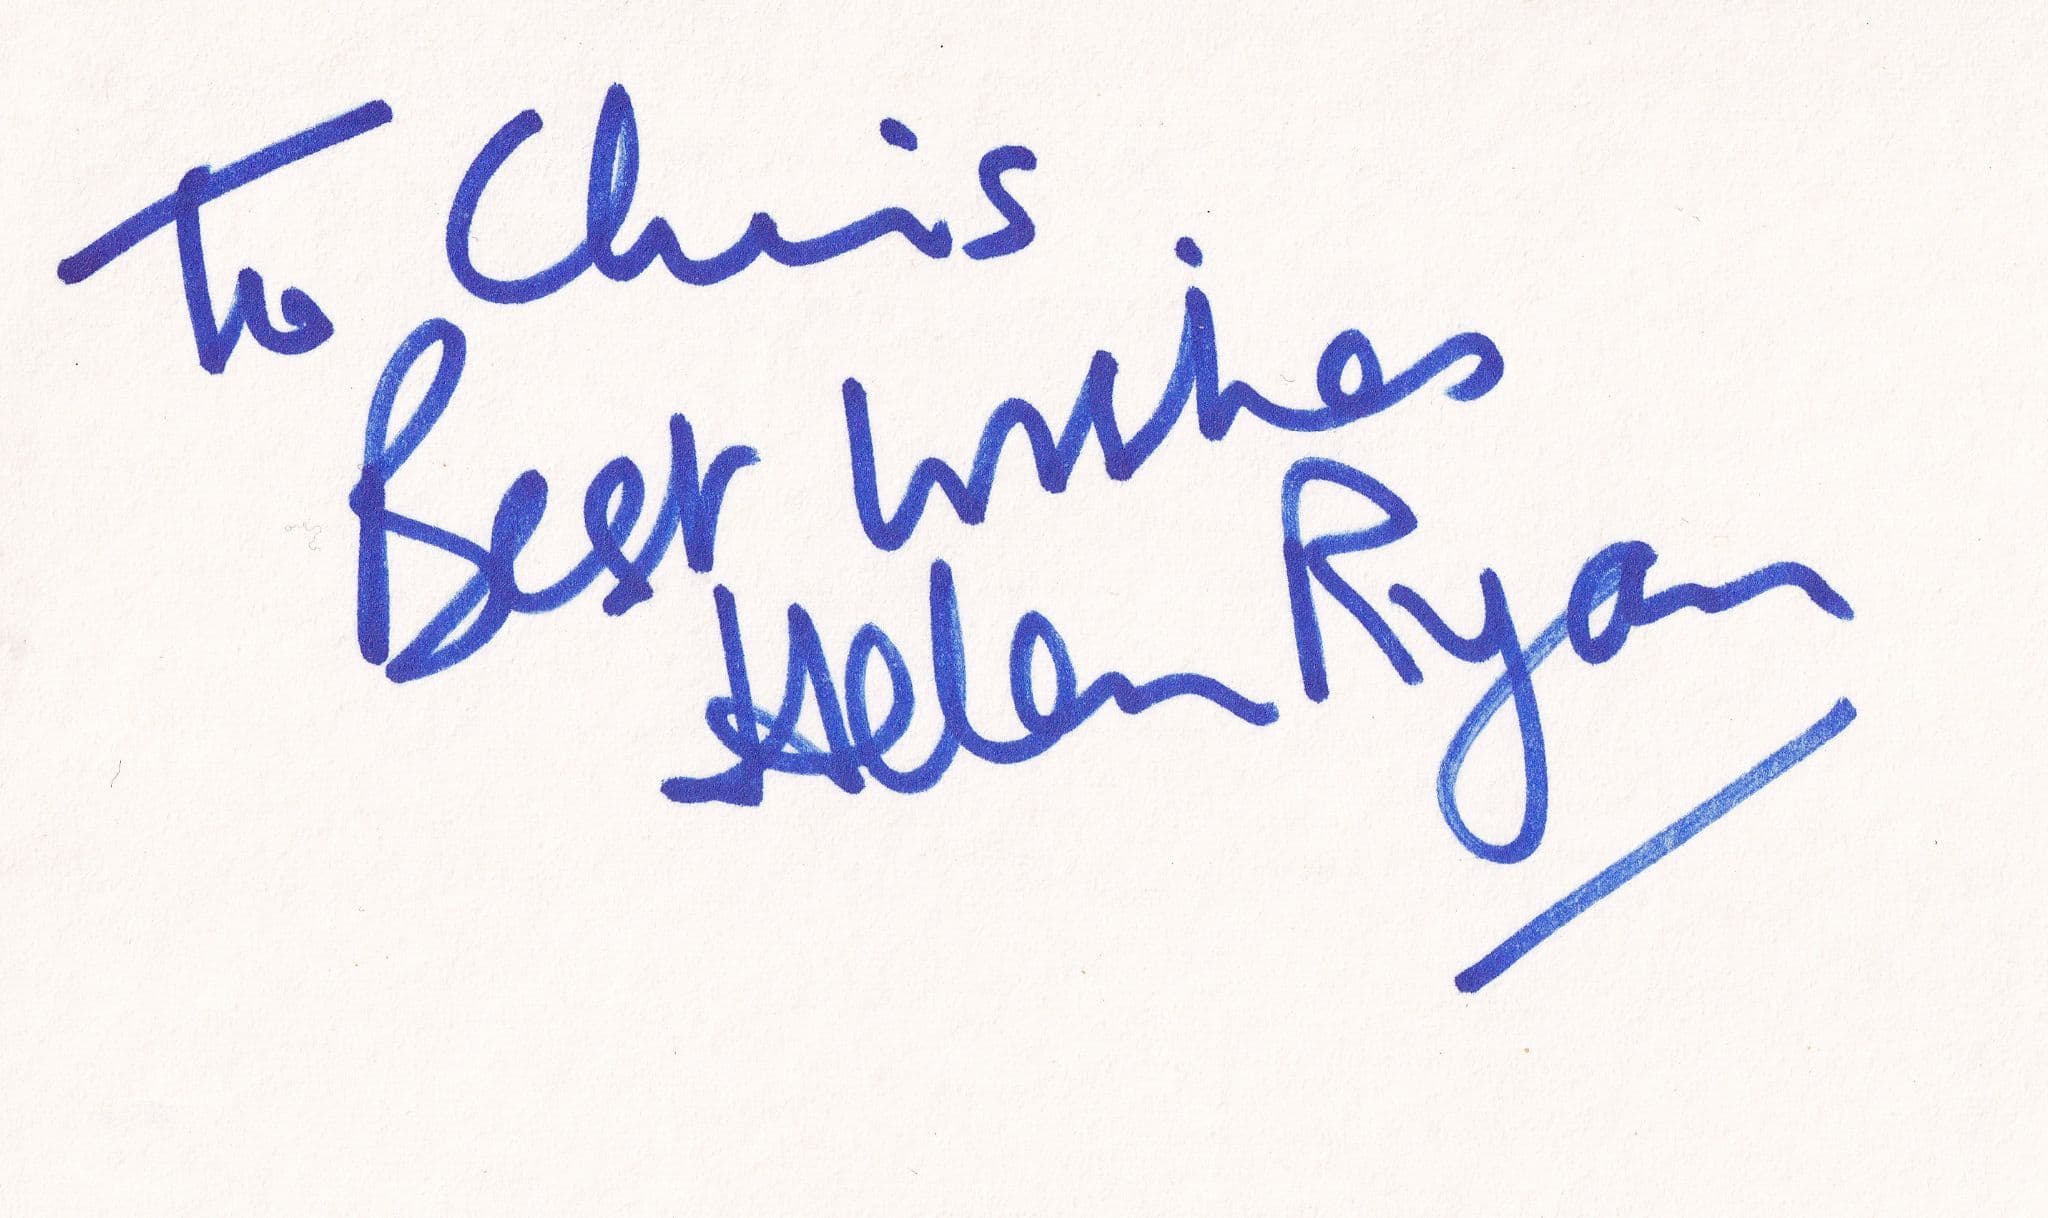 To Chris
Best Wishes
Helen Ryan